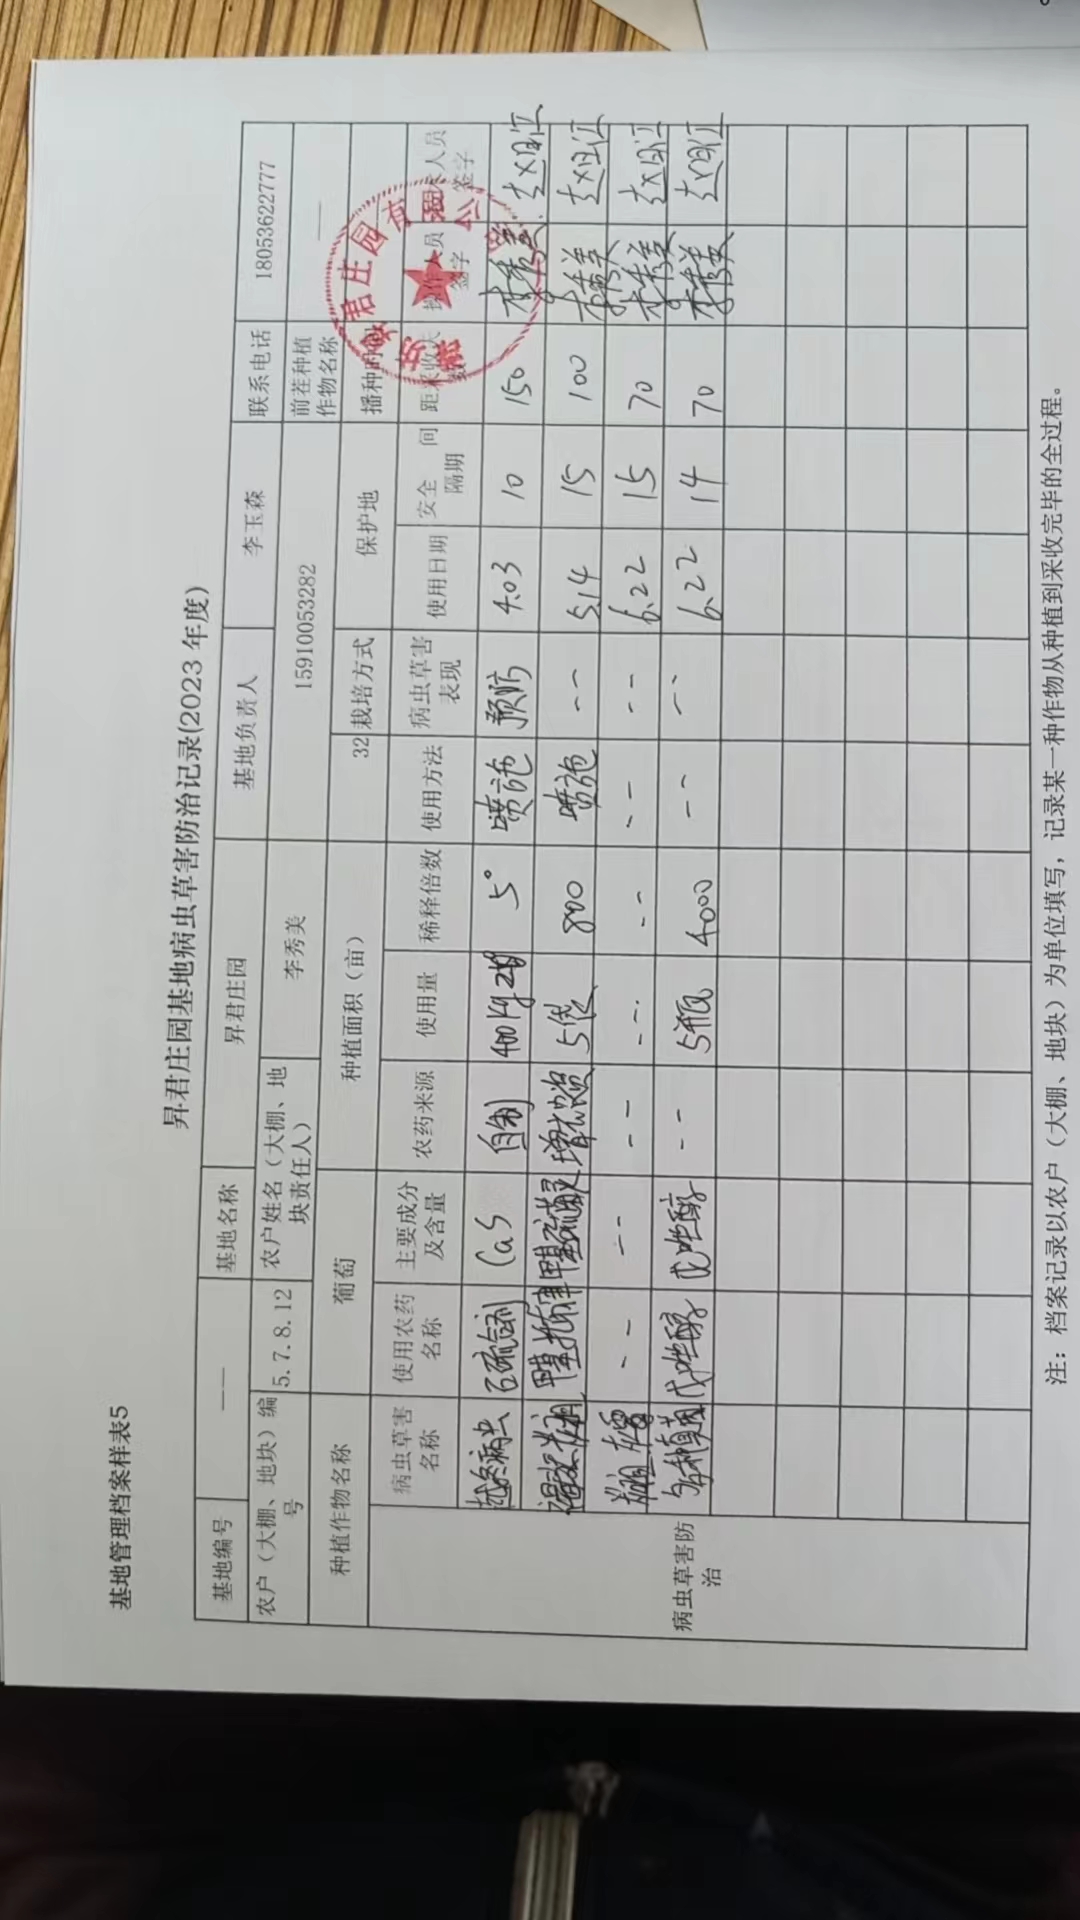 基地管理档案样表5
昇君庄园基地病虫草害防治记录(2023 年度)
基地编号 —— 基地名称 昇君庄园 基地负责人 李玉森 联系电话 18053622777
农户（大棚、地块）编号 5.7.8.12 农户姓名（大棚、地块责任人） 李秀美 15910053282 前茬种植作物名称 ——
种植作物名称 葡萄 种植面积（亩） 32 栽培方式 保护地 播种时间
病虫草害防治
病虫草害名称 使用农药名称 主要成分及含量 农药来源 使用量 稀释倍数 使用方法 病虫草害表现 使用日期 安全间隔期 距采收天数 操作人员签字 技术人员签字
越冬病虫 石硫合剂 CaS 自制 400kg 5° 喷施 预防 4.03 10 150 李秀美
5袋 800 喷施 -- 5.14 15 100 李秀美
-- -- -- -- -- -- -- 6.22 15 70 李秀美
戊唑醇 戊唑醇 -- 5瓶 4000 -- -- 6.22 14 70 李秀美
昇君庄园有限公
注：档案记录以农户（大棚、地块）为单位填写，记录某一种作物从种植到采收完毕的全过程。